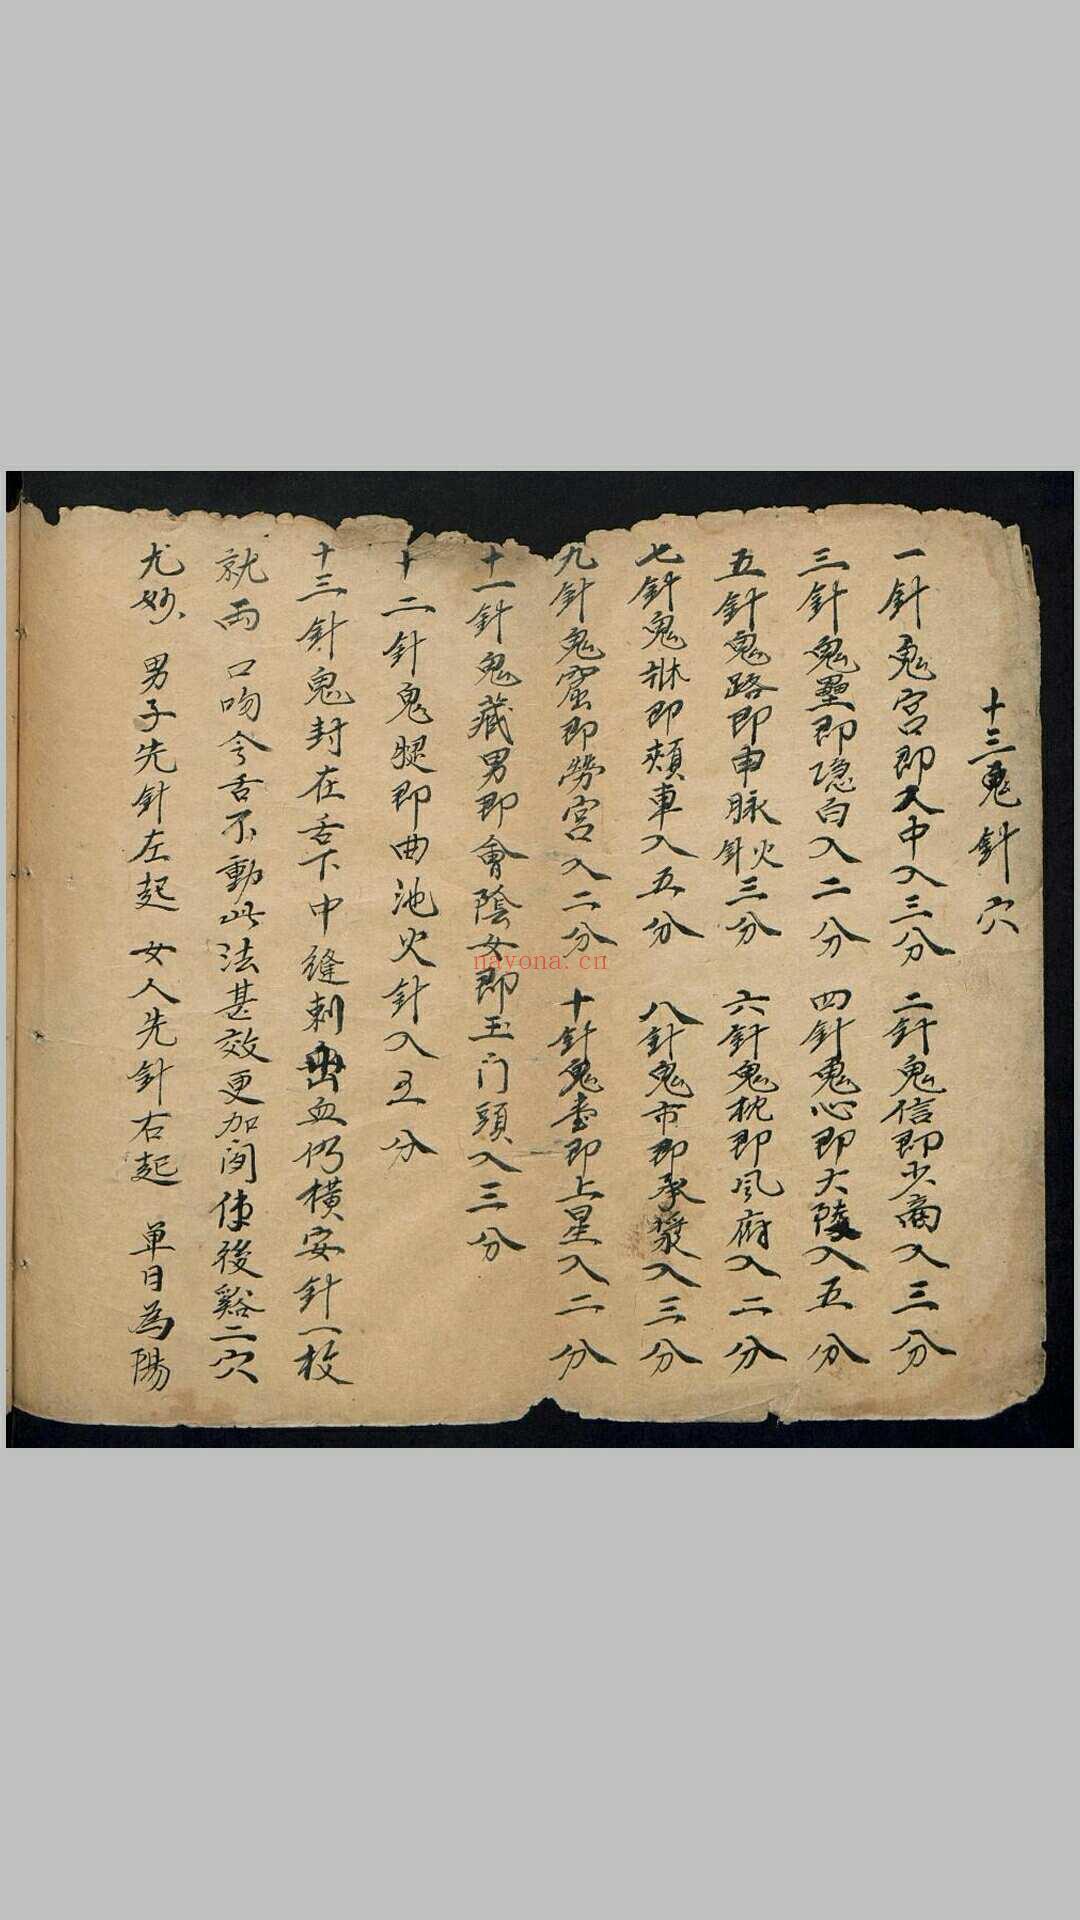 十三鬼針穴
一針鬼宮即人中入三分 二針鬼信即少商入三分
三針鬼壘即隐白入二分 四針鬼心即大陵入五分
五針鬼路即申脉火針三分 六針鬼枕即风府入二分
七針鬼牀即頰車入五分 八針鬼市即承漿入三分
九針鬼窟即勞宮入二分 十針鬼臺即上星入二分
十一針鬼藏男即會陰女即玉门頭入三分
十二針鬼腿即曲池火針入五分
十三針鬼封在舌下中縫刺出血仍橫安針一枚
就兩口吻令舌不動此法甚效更加间使後谿二穴
尤妙 男子先針左起 女人先針右起 单日為陽
nayona.cn